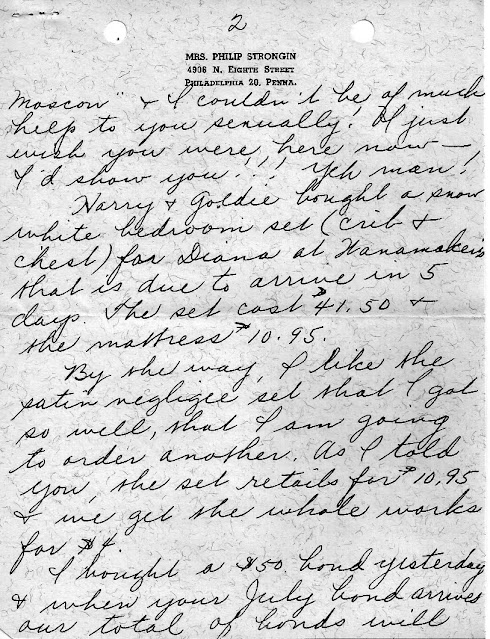 2
MRS. PHILIP STRONGIN
4906 N. EIGHTH STREET
PHILADELPHIA 20, PENNA.
Moscow" & I couldn't be of much
help to you sexually! I just
wish you were here now —
I'd show you!!! Yeh man!
Harry & Goldie bought a snow
white bedroom set (crib &
chest) for Diana at Wanamakers
that is due to arrive in 5
days. The set cost $41.50 &
the mattress $10.95.
By the way, I like the
satin negligee set that I got
so well, that I am going
to order another. As I told
you, the set retails for $10.95
& we get the whole works
for $4.
I bought a $50 bond yesterday
& when your July bond arrives
our total of bonds will